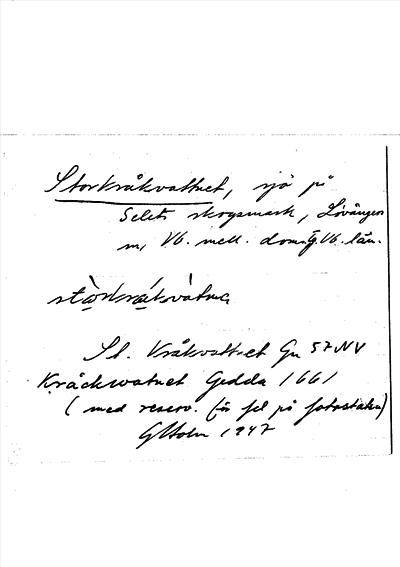 Storkråkvattnet, sjö på
Selets skogsmark, Lövångers
Vb. mell. dom. Vb. län.
St. Kråkvattnet Gn 57 NV
Kråckwatnet Gedda 1661
( med reserv. för fel på fotostaten)
GHolm 1947